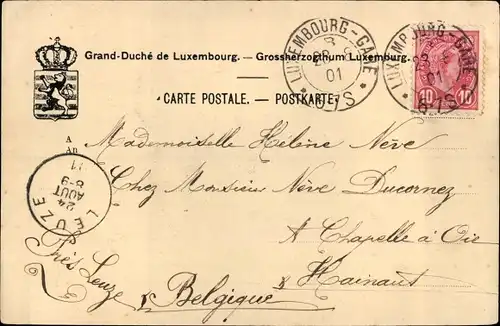 Grand-Duché de Luxembourg. — Grossherzogthum Luxemburg.
CARTE POSTALE. — POSTKARTE.
LUXEMBOURG-GARE
8
01
6-7S
LUXEMBOURG-GARE
8
01
6-7S
10 10
A
An
Mademoiselle Hélène Nève
Chez Monsieur Nève Ducornez
A Chapelle à Oie
Hainaut
Près Leuze
Belgique
LEUZE
11
8-9
AOUT
24